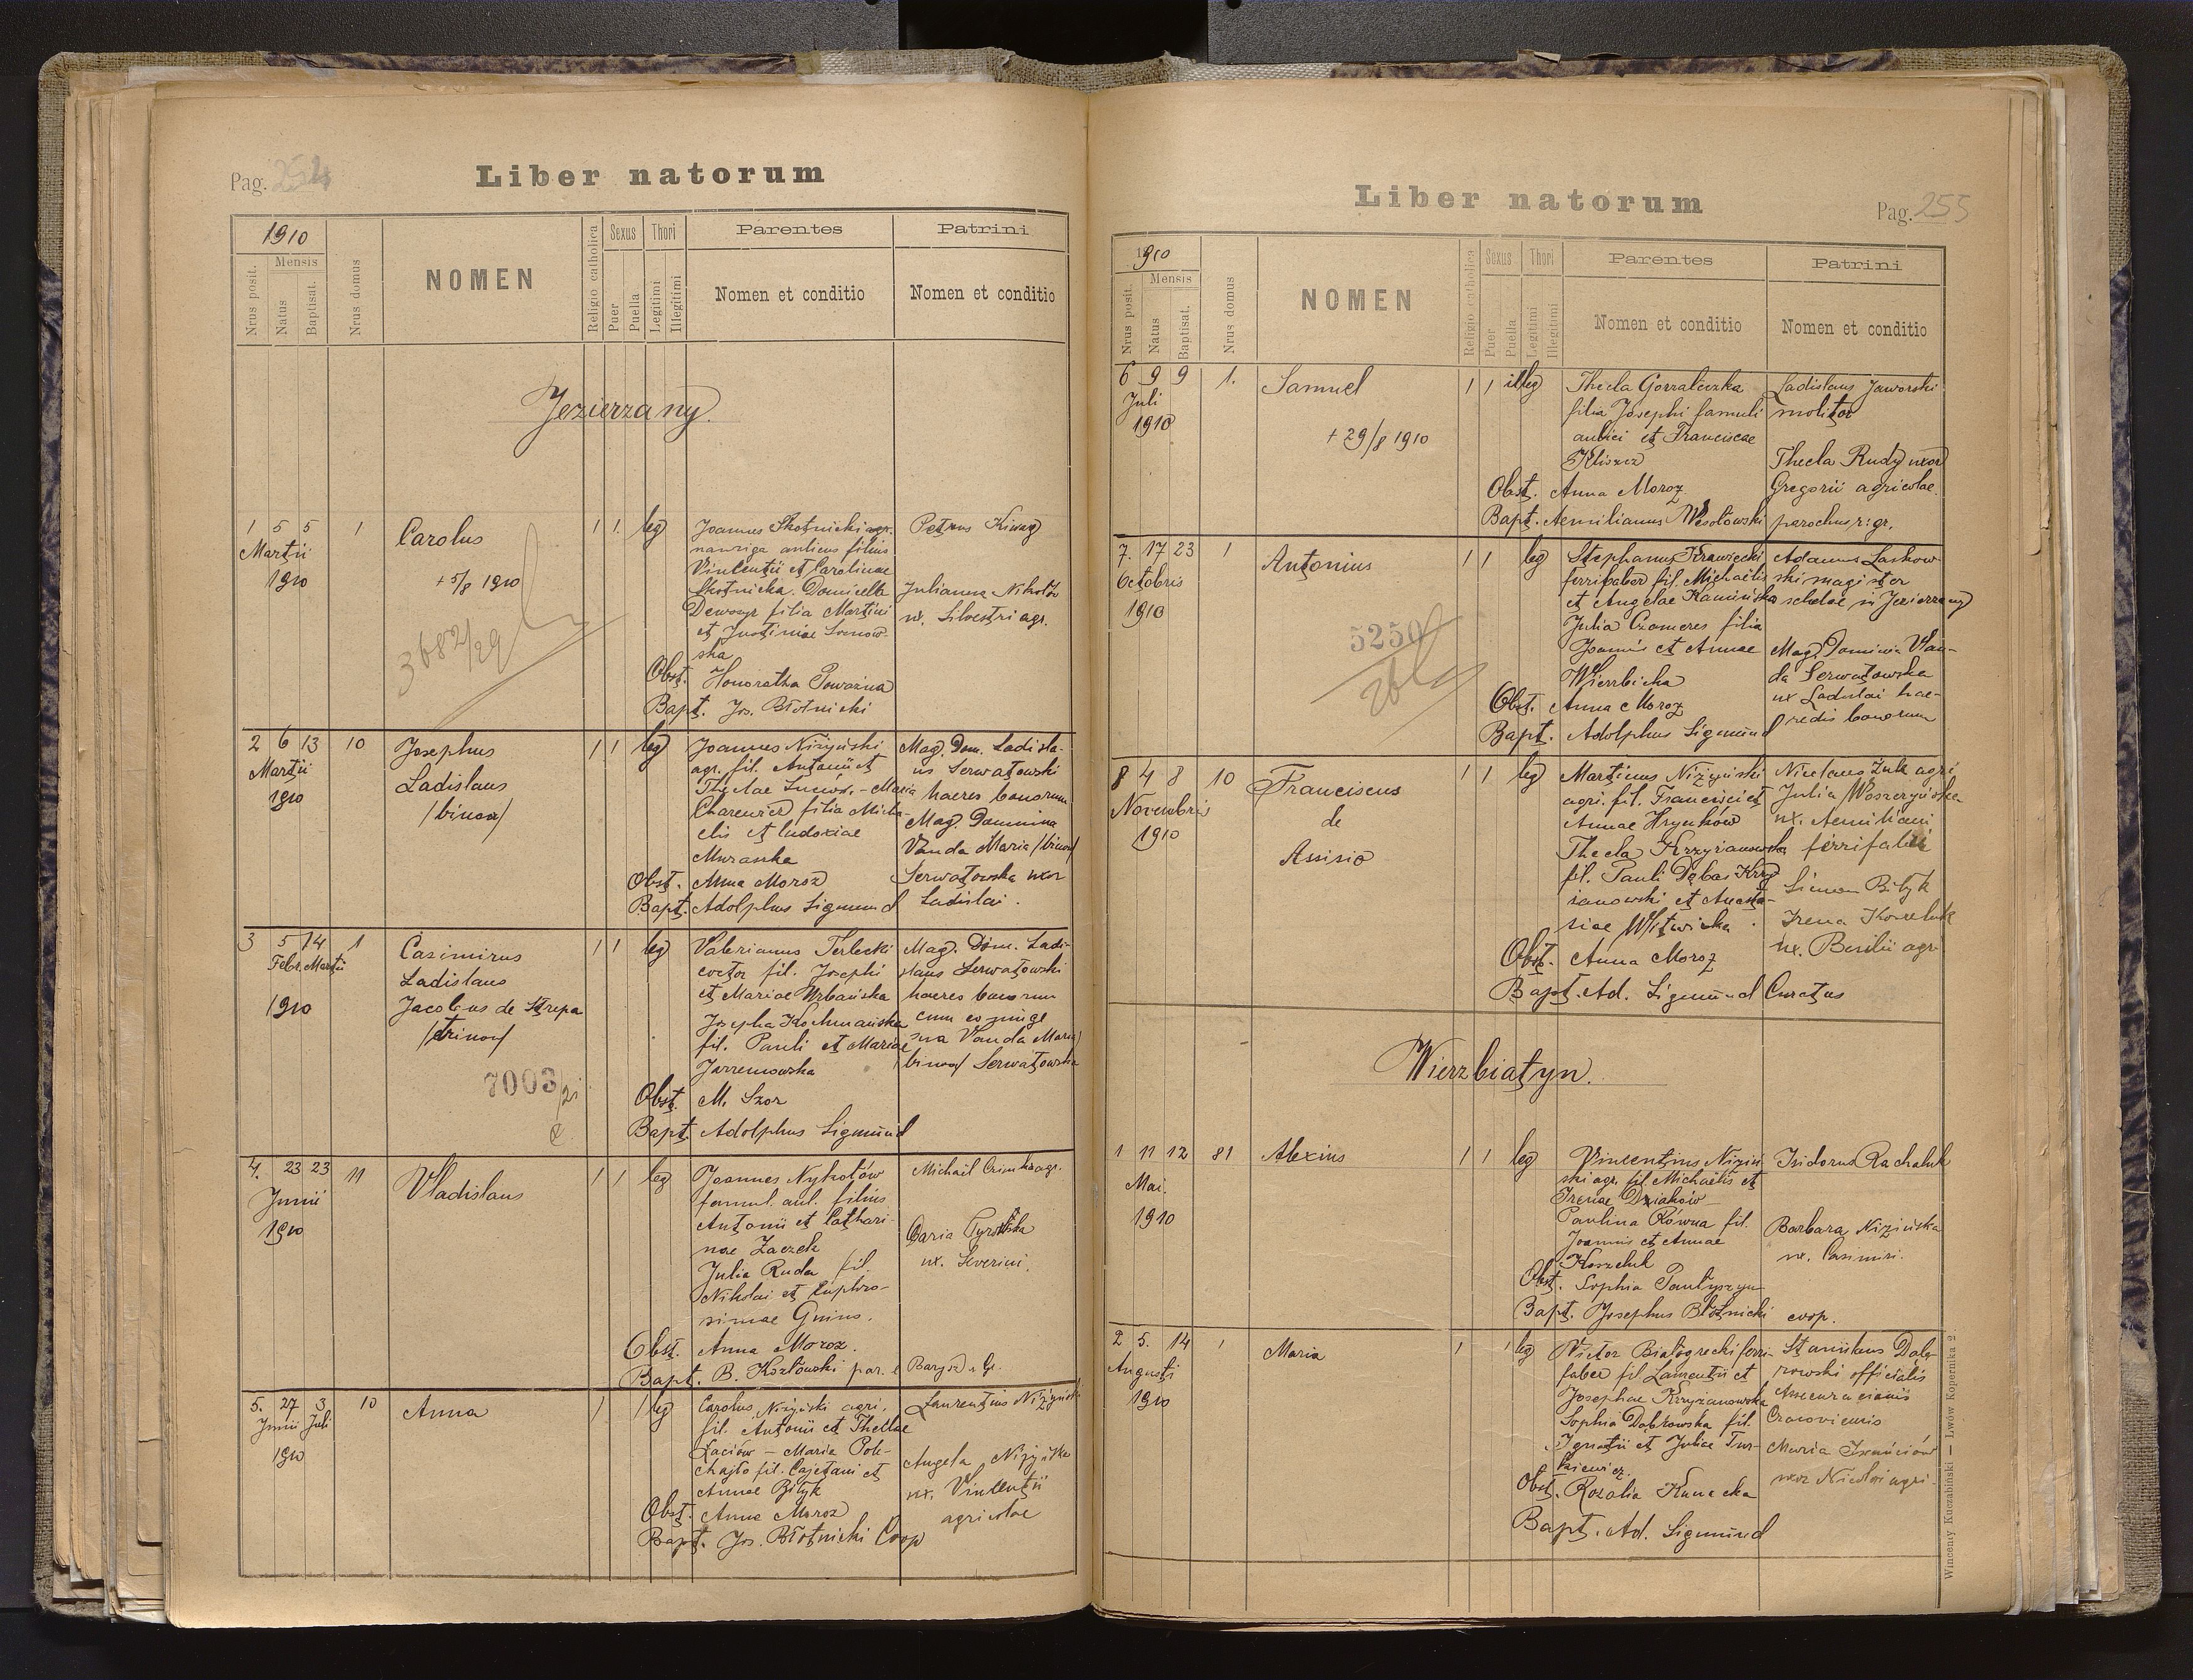 Pag. 254
Liber natorum
1910
Nrus posit.
Mensis
Natus
Baptisat.
Nrus domus
NOMEN
Religio catholica
Sexus
Puer
Puella
Thori
Legitimi
Illegitimi
Parentes
Nomen et conditio
Patrini
Nomen et conditio
Jezierzany.
1 5 5 1 Carolus 1 1. leg
Martii
1910
+ 5/8 1910
3682/29
Joannes Skotnicki agr.
nauriga aulicus filius
Vincentii et Carolinae
Skotnicka. Domicella
filia Martini
et Justiniae Sosnow-
ska
Obst. Honoratha Poważna
Bapt. Jos. Błotnicki
Petrus
Julianna Nikołów
ux. Silvestri agr.
2 6 13 10 Josephus 1 1 leg
Martii
1910
Ladislaus
/binom/
Joannes Niżyński
agr. fil. Antonii et
Theclae - Maria
filia Micha-
elis et Eudoxiae
Muraska
Obst. Anna Moroz
Bapt. Adolphus Sigmund
Mag. Dom. Ladisla-
us Serwatowski
haeres bonorum
Mag. Domnina
Vanda Maria /binom/
Serwatowska uxor
Ladislai.
3 5 14 1 Casimirus 1 1 leg
Febr. Martii
1910
Ladislaus
Jacobus de Strepa
/trinom/
7003
Valerianus Terlecki
coctor fil. Josephi
et Mariae Urbańska
Josepha Kochmańska
fil. Pauli et Mariae
Jarremowska
Obst. M. Szor
Bapt. Adolphus Sigmund
Mag. Dom. Ladi-
slaus Serwatowski
haeres bonorum
cum conjuge
sua Vanda Maria
binom/ Serwatowska
4. 23 23 11 Vladislaus 1 1 leg
Junii
1910
Joannes Nykołów
famul. aul. filius
Antonii et Cathari-
nae Zaczek
Julia Ruda fil.
Nikolai et Euphro-
sinae Gnius.
Obst. Anna Moroz.
Bapt. B. Kozłowski par.
Michail agr.
Daria
ux. Severini.
5. 27 3 10 Anna 1 1 leg
Junii Juli
1910
Carolus Niżyński agri.
fil. Antonii et Theclae
Łaciów - Maria Pole-
chajło fil. Cajetani et
Annae Biłyk
Obst. Anna Moroz
Bapt. Jos. Błotnicki Coop
Laurentius Niżyński
Angela Niżyńska
ux. Vincentii
agricolae
Liber natorum
Pag. 255
1910
Nrus posit.
Mensis
Natus
Baptisat.
Nrus domus
NOMEN
Religio catholica
Sexus
Puer
Puella
Thori
Legitimi
Illegitimi
Parentes
Nomen et conditio
Patrini
Nomen et conditio
6 9 9 1. Samuel 1 1 illeg
Juli
1910
+ 29/8 1910
Thecla Gorzaleczka
filia Josephi famuli
aulici et Franciscae
Kliszcz
Obst. Anna Moroz
Bapt. Aemilianus Wesołowski parochus r. gr.
Ladislaus Jaworski
molitor
Thecla Rudy uxor
Gregorii agricolae.
7. 17 23 1 Antonius 1 1 leg
Octobris
1910
5250
Stephanus Krawiecki
ferrifaber fil. Michaëlis
et Angelae Kamińska
Julia Czomeres filia
Joannis et Annae
Wierzbicka
Obst. Anna Moroz
Bapt. Adolphus Sigmund
Adamus Laskow-
ski magister
scholae in Jezierzany
Mag. Domina Van-
da Serwatowska
ux Ladislai hae-
redis bonorum
8 4 8 10 Franciscus 1 1 leg
Novembris
1910
de
Assisio
Martinus Niżyński
agri. fil. Francisci et
Annae Hryńków
Thecla Krzyżanowska
fil. Pauli Dębas Krzy
żanowski et Anasta-
siae Witwicka.
Obst. Anna Moroz
Bapt. Ad. Sigmund Curatus
Nicolaus Żuk agri
Julia Woszczyńska
ux. Aemiliani
ferrifabri
Simon Biłyk
Irena Koszeluk
ux. Basilii agr.
Wierzbiatyn.
1 11 12 81 Alexius 1 1 leg
Mai.
1910
Vincentius Niziń
ski agr. fil. Michaëlis et
Irenae Dziaków
Paulina Równa fil.
Joannis et Annae
Koszeluk
Obst. Sophia Pantyszyn
Bapt. Josephus Błotnicki coop.
Isidorus Rachaluk
Barbara Nizińska
ux. Casimiri.
2 5. 14 1 Maria 1 1 leg
Augusti
1910
Victor Białogrecki ferri-
faber fil Laurentii et
Josephae Krzyżanowska
Sophia Dąbrowska fil.
Ignatii et Juliae Tur-
kiewicz.
Obst. Rozalia Kunacka
Bapt. Ad. Sigmund
Stanislaus Dąb-
rowski officialis
Assecuracionis
Cracoviensis
Maria Iwańciów
uxor Nicolai agri.
Wincenty Kuczabiński — Lwów Kopernika 2